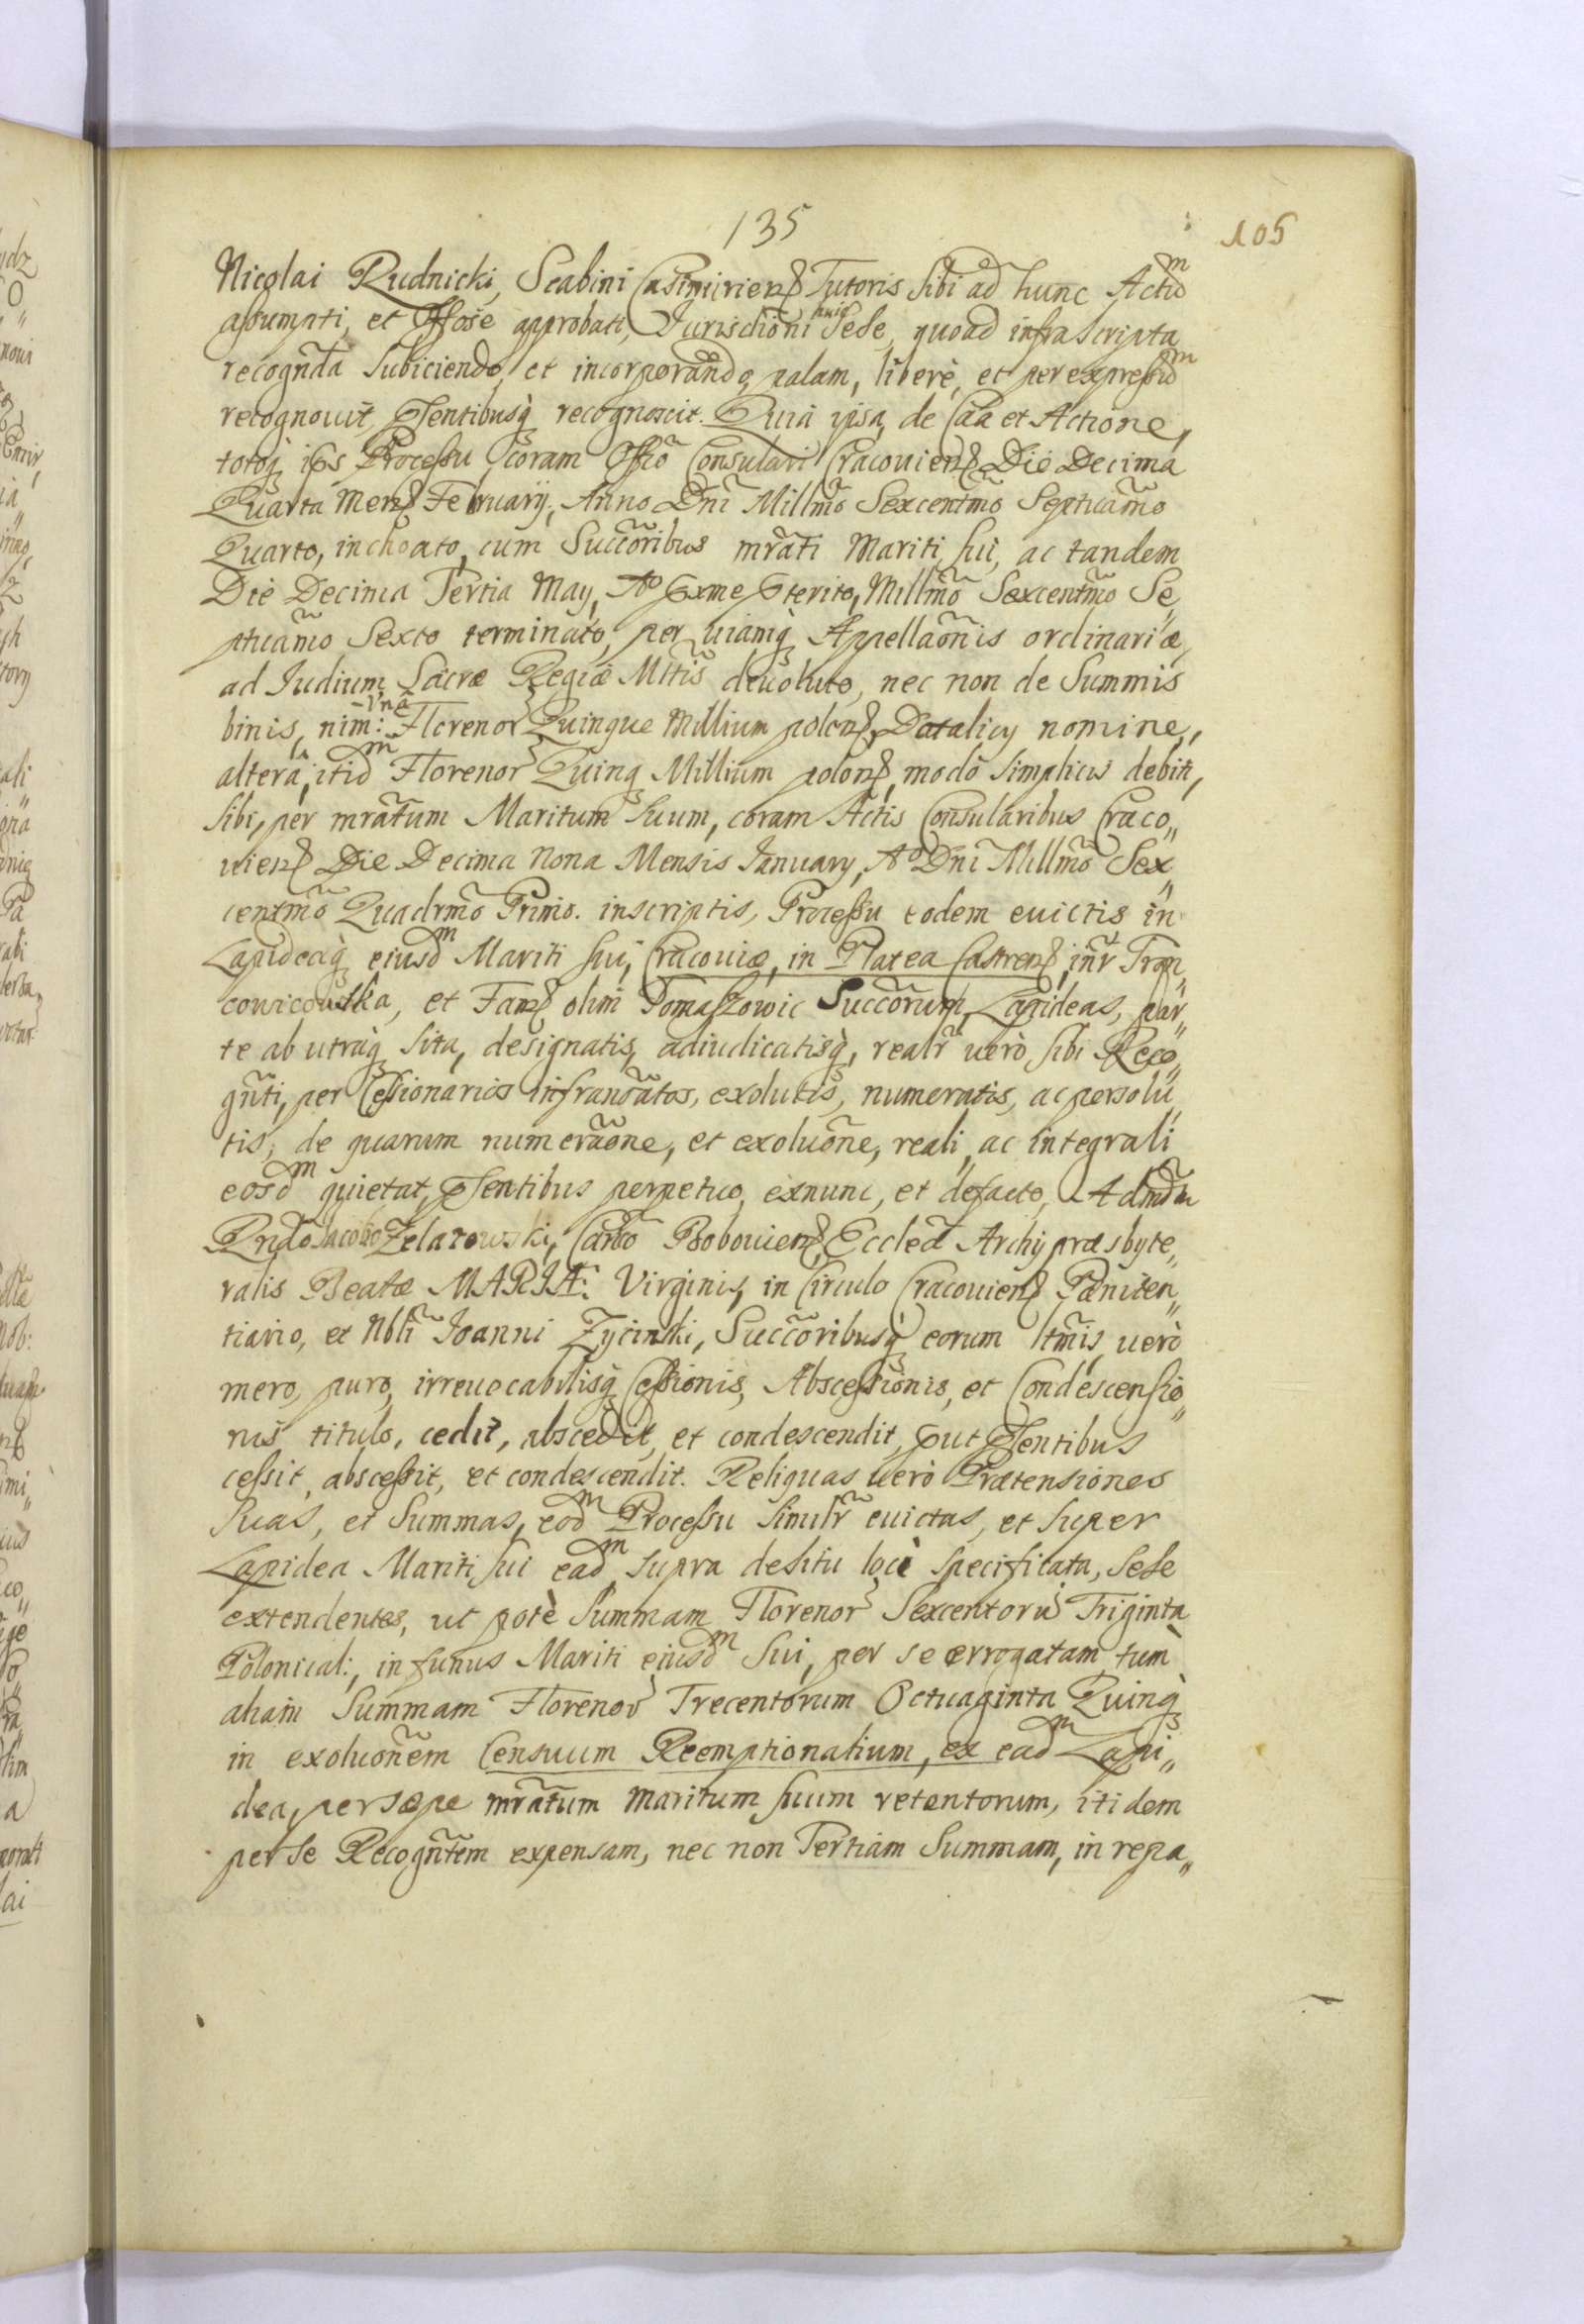 135
105
Nicolai Rudnicki, Scabini Casimirień Tutoris sibi ad hunc Actũ
assumpti, et Offose approbati, Jurisdictioni huic Sese, quoad infrascripta
recognñda Subiciendo, et incorporando, palam, liberè, et per expressũ
recognouit, Psentibusq̀ recognoscit. Quia ipsa, de Caã et Actione,
totoq̀ ips Processu coram Offiõ Consulari Cracouień Die Decima
Quarta Meń February, Anno Dñi Millm̃o Sexcentm̃o Septuam̃o
Quarto, inchoato, cum Succõribus mrãti Mariti sui, ac tandem
Die Decima Tertia May, Aõ pxme pterito, Millm̃o Sexcentm̃o Se„
ptuam̃o Sexto terminato, per uiamq̀ Appellaõnis ordinariæ,
ad Iudium Sacræ Regiæ Mttis deuoluto, nec non de Summis
binis, nim: Vna Florenoꝝ Quinque Millium poloń, Dotalicy nomine,
altera, itid̃ Florenoꝝ Quinq̀ Millium poloń, modo simplicis debiti,
sibi, per mrãtum Maritum suum, coram Actis Consularibus Craco„
uień Die Decima Nona Mensis January, Aõ Dñi Millm̃o Sex„
centm̃o Quadrm̃o Primo. inscriptis, Processu eodem euictis in
Lapideaq̀ eiusd̃ Mariti sui, Cracouiæ, in Platea Castreń, inr̃ Tron„
couicouska, et Fam̃ olim Tomaszowic Succõrum, Lapideas, par„
te ab utraq̀ sita, designatis, adiudicatisq̀, realr̃ uerò sibi Reco„
gñti, per Cessionarios infranoãtos, exolutis, numeratis, ac persolu„
tis, de quarum numeraõne, et exoluõne, reali, ac integrali
eosd̃ quietat, Psentibus perpetuo, exnunc, et defacto, Admd̃m
Rndõ Jacobo Zelazowski, Canõ Bobouień, Ecclẽa Archipræsbyte„
ralis Beatæ MARIÆ: Virginis, in Circulo Cracouień Pæniten„
tiario, et Nbli Joanni Zycinski, Succõribusq̀ eorum ltm̃is, uerò
mero, puro, irreuocabilisq̀ Cessionis, Abscessionis, et Condescensio„
nis titulo, cedit, abscedit, et condescendit, put Psentibus
cessit, abscessit, et condescendit. Reliquas uerò Prætensiones
suas, et Summas, eod̃ Processu similr̃ euictas, et super
Lapidea Mariti sui ead̃ supra desitu loci specificata, sese
extendentes, ut potè Summam Florenoꝝ Sexcentorũ Triginta
Polonical:, in funus Mariti eiusd̃ sui, per se errogatam, tum
aliam Summam Florenoꝝ Trecentorum Octuaginta Quinq̀
in exoluõnem Censuum Reemptionalium, ex ead̃ Lapi„
dea, per sæpe mrãtum Maritum suum retentorum, itidem
per se Recogñtem expensam, nec non Tertiam Summam, in repa„